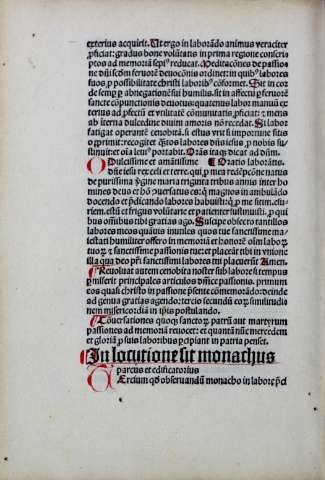 exterius acquirit. Ut ergo in laborādo animus veraciter
ꝓficiat: gradus bone volūtatis in prima regione conscri
ptos ad memoriā sepiꝰ reducat. Meditacōnes de passio
ne dn̄i scd̄m feruorē deuocōnis ordinet: in quibꝰ labores
suos ꝓ possibilitate christi laboribꝰ cōformet. Sit in cor
de semꝑ ꝙ abnegationē sui humilis. sit in affectu ꝑ feruorē
sancte cōpunctionis deuotus: quatenus labor manuū ex
terius ad ꝓfectū et vtilitatē cōmunitatis ꝓficiat: et mens
ab iterna dulcedine diuini amoris nō recedat. Si labor
fatigat operantē cenobita. si estus vrit si importune sitis
ꝓgrinat: recogitet q̄ntos labores dn̄s iesus ꝓ nobis su
stinuit: et oīa leuiꝰ portabit. Orās itaqȝ dicat ad dn̄m.
O Dulcissime et amātissime ¶ Oratio laborātis.
dn̄e iesu rex celi et terre. qui ꝓ mea redēpcōne natus
de purissima v̄gine maria triginta tribus annis inter ho
mines deus et hō ꝯuersatus es: q̄ magnos in ambulādo
docendo et p̄dicando labores habuisti: q̄ ꝓ me sitim. esu
riem. estū et frigus volūtarie et patienter sustinuisti. ꝓ qui
bus oīībus tibi gratias ago. Suscipe obsecro tantillos
labores meos quauis inutiles quos tue sanctissime ma
iestati humiliter offero in memoriā et honorē oīm laborꝫ
tuoꝝ et sanctissime passionis tue: et placeāt tibi in vnione
illa qua deo pr̄i sanctissimi labores tui placuerūt Amen.
¶ Reuoluat autem cenobita noster sub labores tempus
ꝑ miserit principales articulos officē passionis. primum
eos quasi christo in passione p̄sente cōmemorādo: deinde
ad genua gratias agendo: tercio secundū eoꝝ similitudi
nem misericordiā in ip̄is postulando.
¶ Conuersationes quoqȝ sanctoꝝ patrū aut martyrum
passiones ad memoriā reuocet: et quantā nūc mercedem
et gloriā ꝓ suis laboribus ꝑcipiant in patria penset.
¶ In locutione sit monachus
parcus et edificatorius
T Ercium qd̄ obseruandū monacho in laborꝫ p̄ci